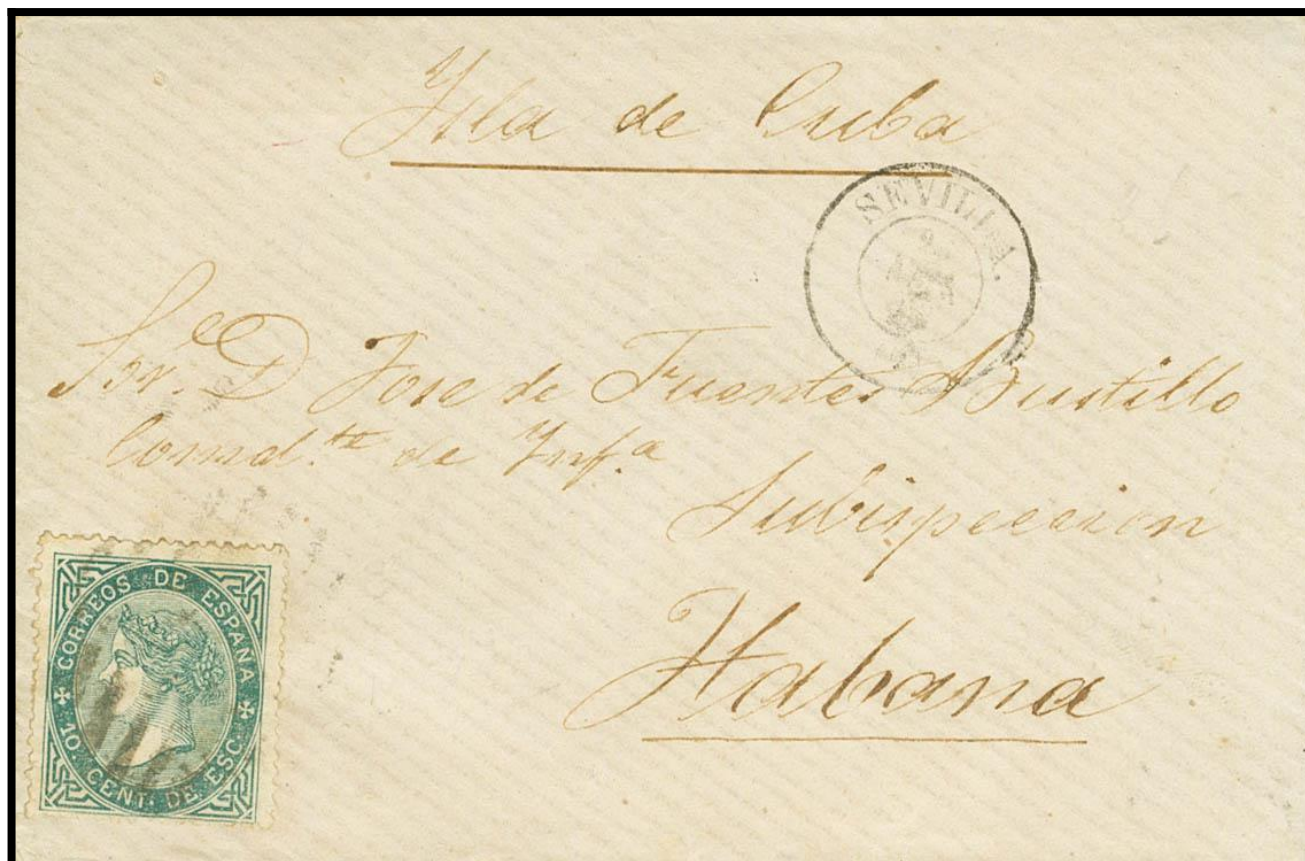 Ysla de Cuba
SEVILLA.
Sor. D Jose de Fuentes Bustillo
Comd.te de Ynf.a
Subispeccion
Habana
CORREOS DE ESPAÑA
10. CENT. DE ESC.